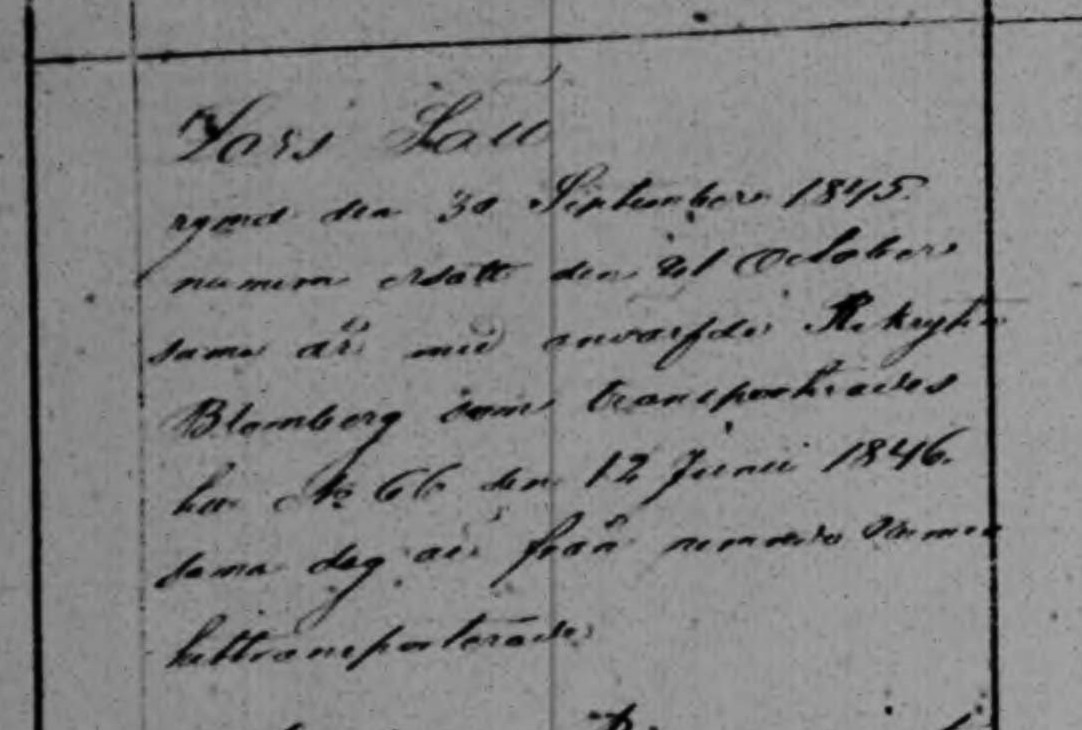 Lars Lau
rymd den 30 September 1845.
numern ersatt den 21 October
sama år med anvärfde Rekryten
Blomberg som transporterades
till № 66 den 12 Junii 1846.
sama dag är från
hittransporterade